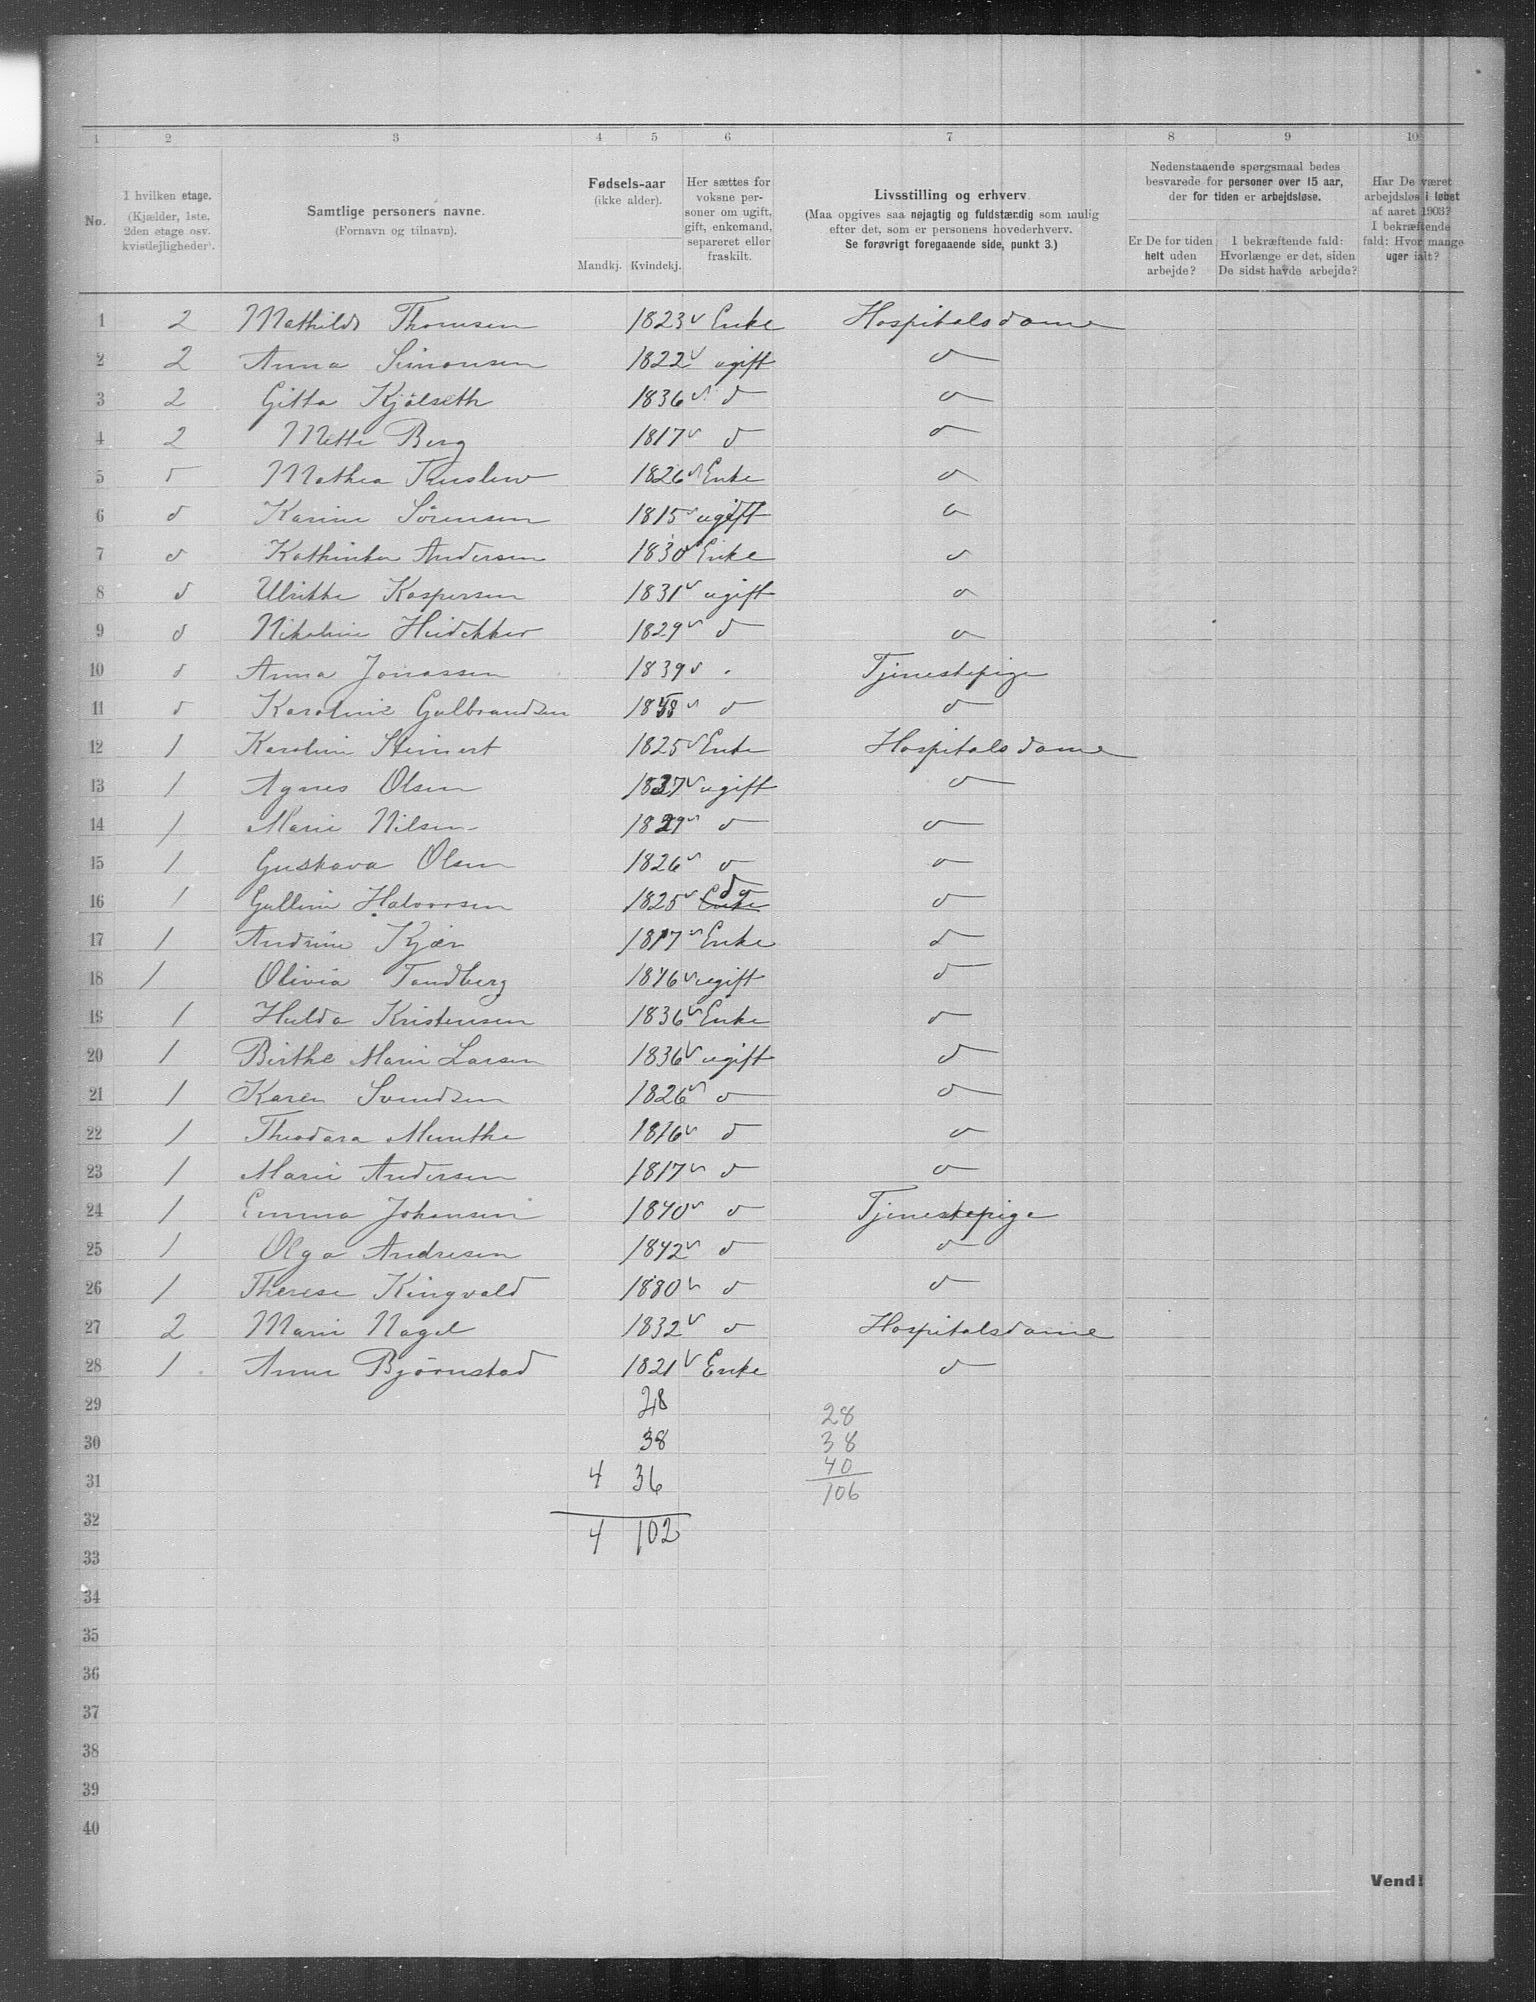 1 2 3 4 5 6 7 8 9 10
No.
I hvilken etage.
(Kjælder, 1ste, 2den etage osv. kvistlejligheder).
Samtlige personers navne.
(Fornavn og tilnavn).
Fødsels-aar
(ikke alder).
Mandkj. Kvindekj.
Her sættes for voksne personer om ugift, gift, enkemand, separeret eller fraskilt.
Livsstilling og erhverv
(Maa opgives saa nøjagtig og fuldstændig som mulig efter det, som er personens hovederhverv.
Se forøvrigt foregaaende side, punkt 3.)
Nedenstaaende spørgsmaal bedes besvarede for personer over 15 aar, der for tiden er arbejdsløse.
Er De for tiden helt uden arbejde?
I bekræftende fald: Hvorlænge er det, siden De sidst havde arbejde?
Har De været arbejdsløs i løbet af aaret 1903? I bekræftende fald: Hvor mange uger ialt?
1 2 Mathilde Thomsen 1823 v Enke Hospitalsdame
2 2 Anna Simonsen 1822 v ugift d
3 2 Gitta Kjølseth 1836 v d d
4 2 Mette Berg 1817 v d d
5 d Mathea 1826 v Enke d
6 d Karine Sörensen 1815 v ugift d
7 d Kathinka Andersen 1830 v Enke d
8 d Ulrikke Kaspersen 1831 v ugift d
9 d Nikoline Heidekker 1829 v d d
10 d Anna Jonassen 1839 v . Tjenestepige
11 d Karoline Gulbrandsen v d d
12 1 Karoline Steinert 1825 v Enke Hospitalsdame
13 1 Agnes Olsen 1837 v ugift d
14 1 Marie Nilsen 1829 v d d
15 1 Gustava Olsen 1826 v d d
16 1 Gulline Halvorsen 1825 v Enke do d
17 1 Andrine Kjær 1817 v Enke d
18 1 Olivia Tandberg 1816 v ugift d
19 1 Hulda Kristensen 1836 v Enke d
20 1 Birthe Marie Larsen 1836 v ugift d
21 1 Karen Svendsen 1826 v d d
22 1 Theodora Munthe 1816 v d d
23 1 Marie Andersen 1817 v d d
24 1 Emma Johansen 1840 v d Tjenestepige
25 1 Olga Andresen 1842 v d d
26 1 Therese Kingvold 1880 v d d
27 2 Marie Nagel 1832 v d Hospitalsdame
28 1 Anne Bjørnstad 1821 v Enke d
29 28 28
30 38 38
31 4 36 40
106
32 4 102
33
34
35
36
37
38
39
40
Vend!